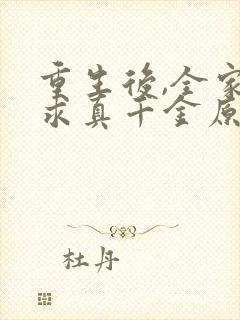 重生後,全家
求真千金原
杜丹